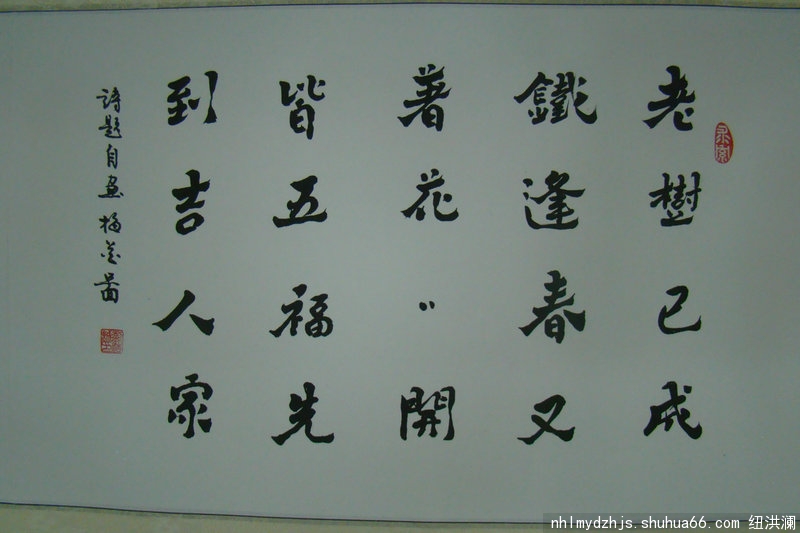 老樹已成
鐵逢春又
著花〃開
皆五福先
到吉人家
詩題自画梅花圖
nhlmydzhjs.shuhua66.com 纽洪澜